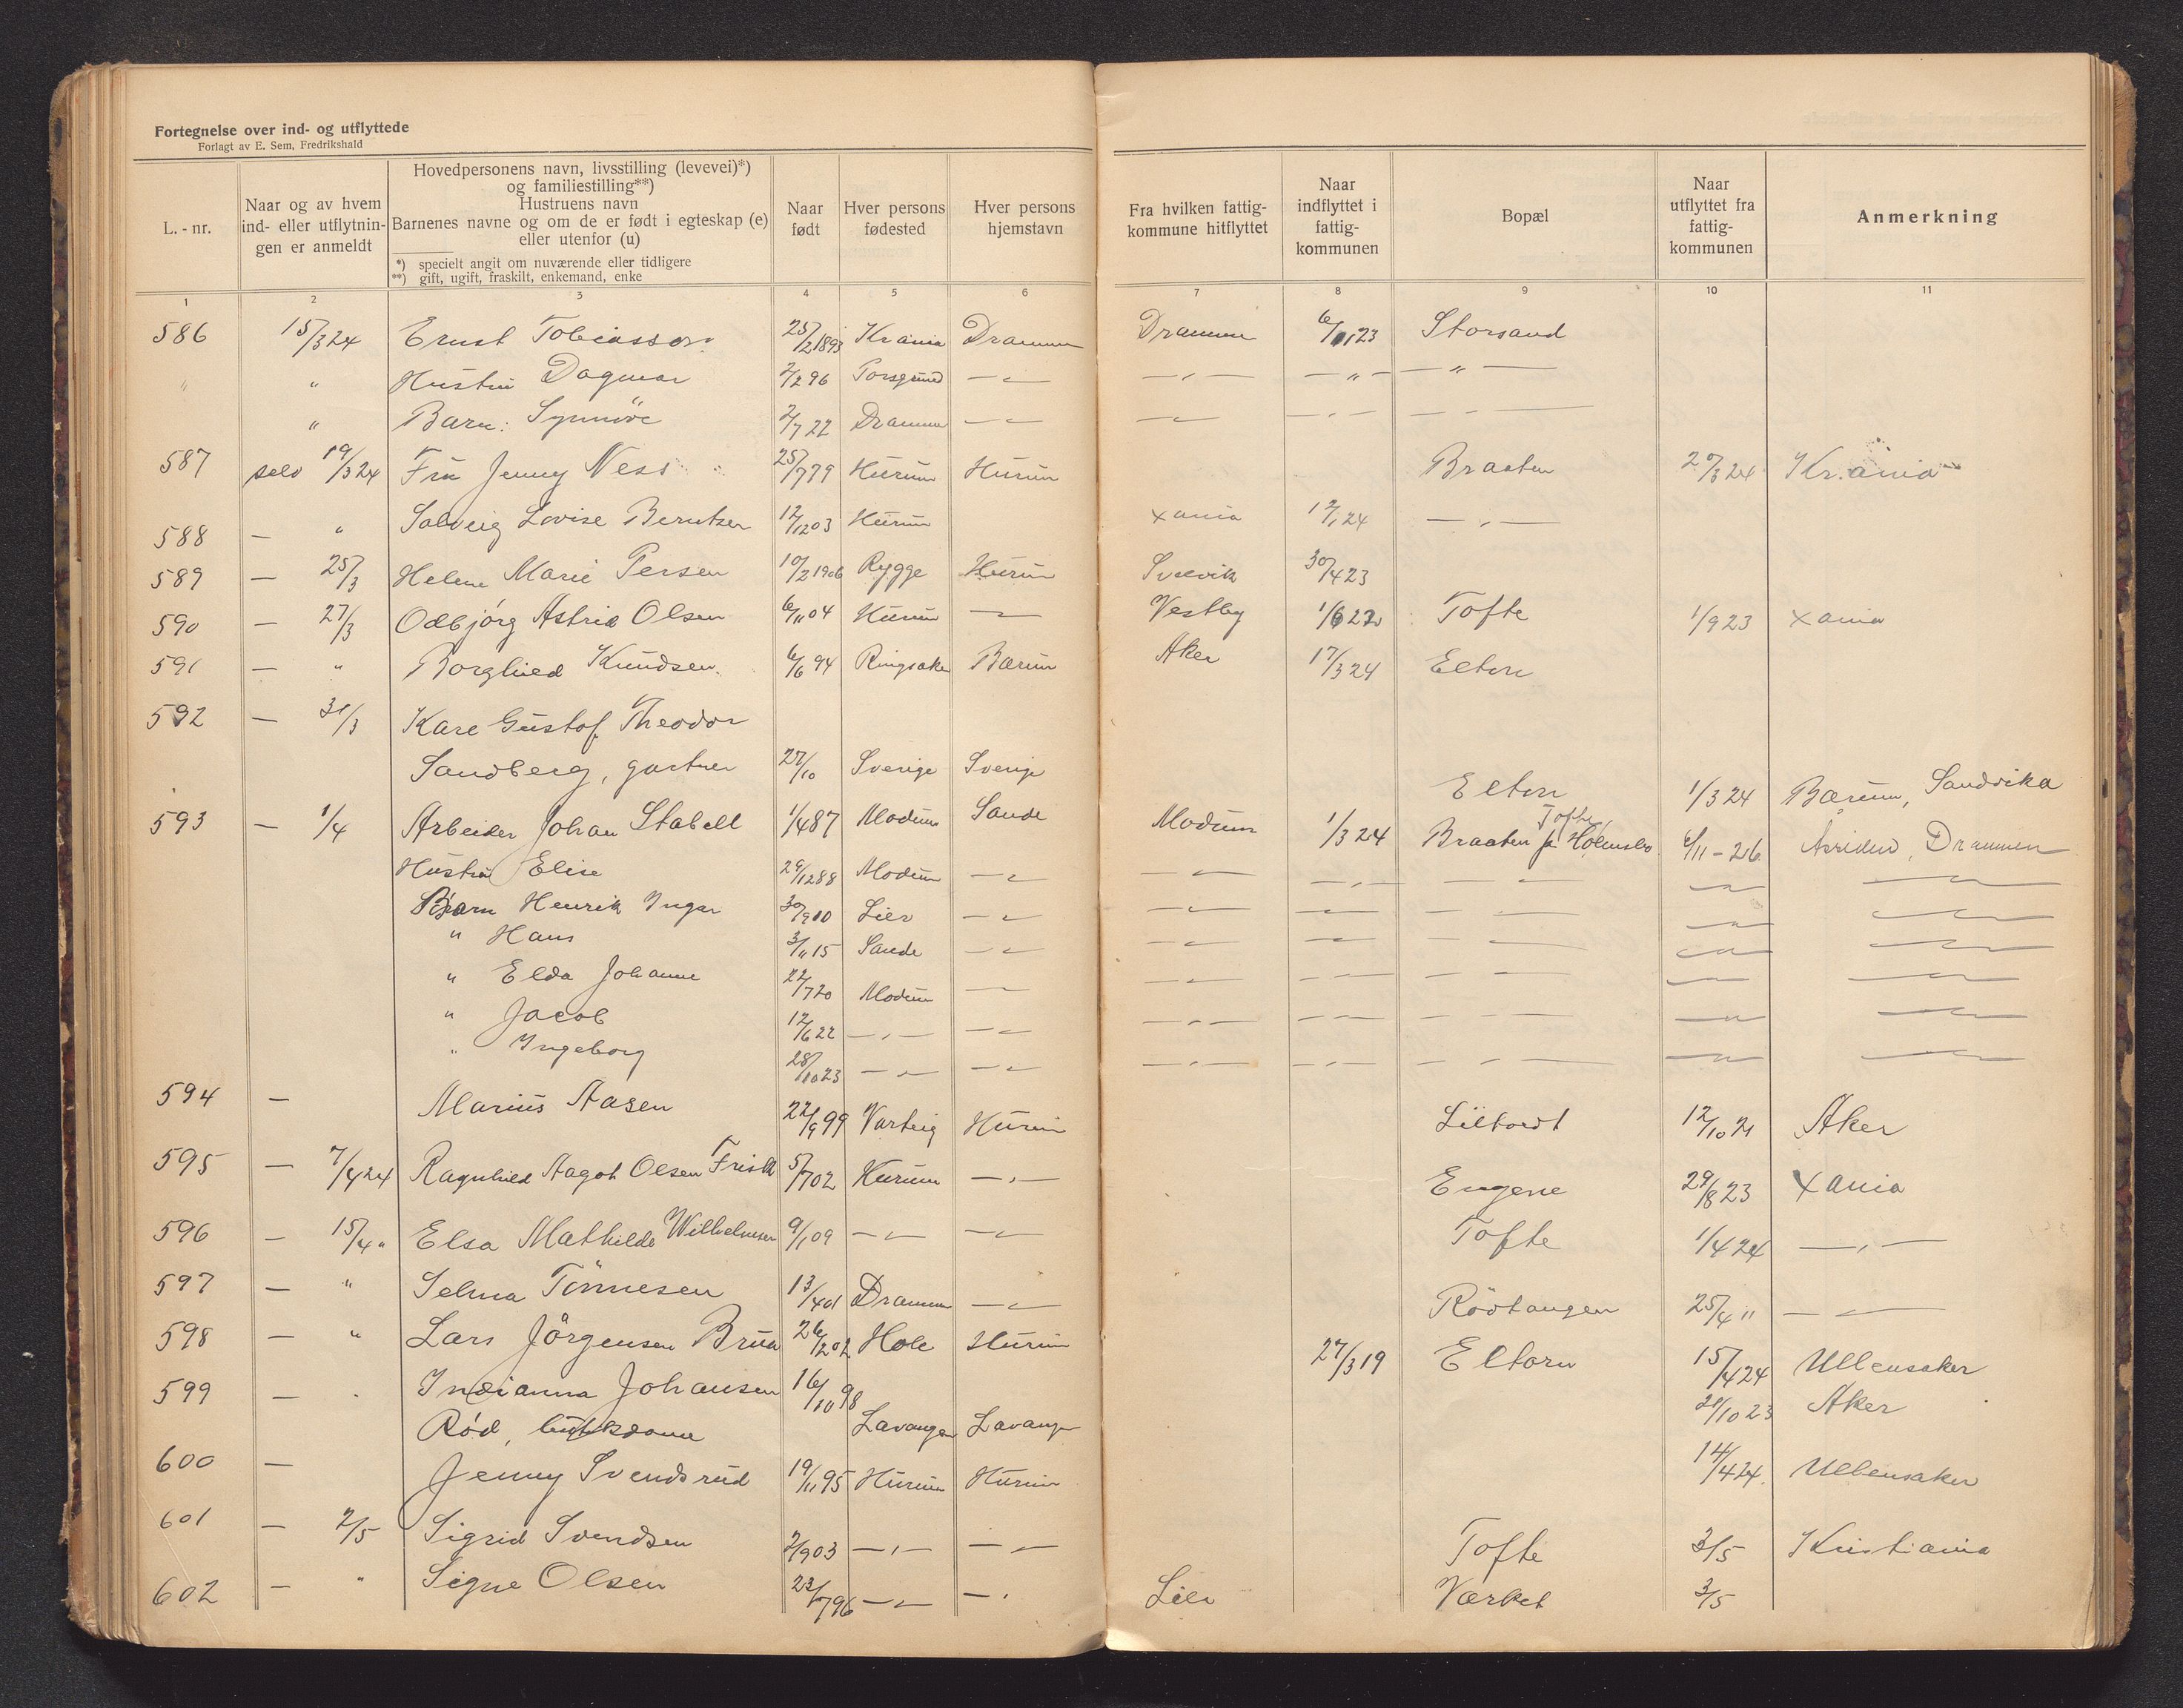 Fortegnelse over ind- og utflyttede
Forlagt av E. Sem, Fredrikshald
L. - nr.
Naar og av hvem
ind- eller utflytnin-
gen er anmeldt
Hovedpersonens navn, livsstilling (levevei)*)
og familiestilling**)
Hustruens navn
Barnenes navne og om de er født i egteskap (e)
eller utenfor (u)
*) specielt angit om nuværende eller tidligere
**) gift, ugift, fraskilt, enkemand, enke
Naar
født
Hver persons
fødested
Hver persons
hjemstavn
Fra hvilken fattig-
kommune hitflyttet
Naar
indflyttet i
fattig-
kommunen
Bopæl
Naar
utflyttet fra
fattig-
kommunen
Anmerkning
1 2 3 4 5 6 7 8 9 10 11
586 15/3 24 Ernst Tobiassen 25/2 1893 Krania Drammen Drammen 23 Storsand
" " Hustru Dagmar 2/2 96 Porsgrund — " — — " — — " — — " —
" Barn: Synnöve 2/7 22 Drammen — " — — " — — " — — " —
587 selv 19/3 24 Fru Jenny Ness 25/7 79 Hurum Hurum Braaten 20/3 24 Kr.ania
588 — " Solveig Lovise Berntsen 12/12 03 Hurum Xania 12/1 24 — " —
589 — 25/3 Helene Marie Persen 10/2 1906 Rygge Hurum Svelvik 30/4 23
590 — 27/3 Odbjørg Astrid Olsen 6/11 04 Hurum — " — Vestby 1/6 22 Tofte 1/9 23 Xania
591 — " Borghild Knudsen 6/6 94 Ringsaker Bærum Aker 17/3 24 Elton
592 — 31/3 Kare Gustof Theodor
Sandberg, gartner 27/10 Sverige Sverige Elton 1/3 24 Bærum, Sandvika
593 — 1/4 Arbeider Johan Stabell 1/4 87 Modum Sande Modum 1/3 24 Braaten Tofte Holmsbo 6/11 - 26 Drammen
Hustru Elise 29/12 88 Modum — " — — " — — " — — " — — " — — " —
Barn Henrik Ingar 30/9 10 Lier — " — — " — — " — — " — — " — — " —
" Hans 3/11 15 Sande — " — — " — — " — — " — — " — — " —
" Elda Johanne 22/7 20 Modum — " — — " — — " — — " — — " — — " —
" Jacob 12/6 22 — " — — " — — " — — " — — " — — " — — " —
" Ingeborg 28/10 23 — " — — " — — " — — " — — " — — " — — " —
594 — Marius Aasen 22/9 99 Varteig Hurum 12/10 21 Aker
595 — 7/4 24 Ragnhild Aagot Olsen Frisk 5/7 02 Hurum — " — Engene 29/8 23 Xania
596 — 15/4 " Elsa Mathilde Wilhelmsen 9/1 09 — " — — " — Tofte 1/4 24 — " —
597 — " Selma Tönnesen 13/4 01 Drammen — " — Rödtangen 25/4 " — " —
598 — " Lars Jörgensen Brua 26/12 02 Hole Hurum 27/3 19 Eltorn 15/4 24 Ullensaker
599 — " Indianna Johansen 16/10 98 21/10 23 Aker
Rød, Lavangen Lavangen
600 — Jenny Svendsrud 19/11 95 Hurum Hurum 14/4 24 Ullensaker
601 — 2/5 Sigrid Svendsen 2/9 03 — " — — " — Tofte 3/5 Kristiania
602 — " Signe Olsen 23/7 96 — " — — " Lier Værket 3/5